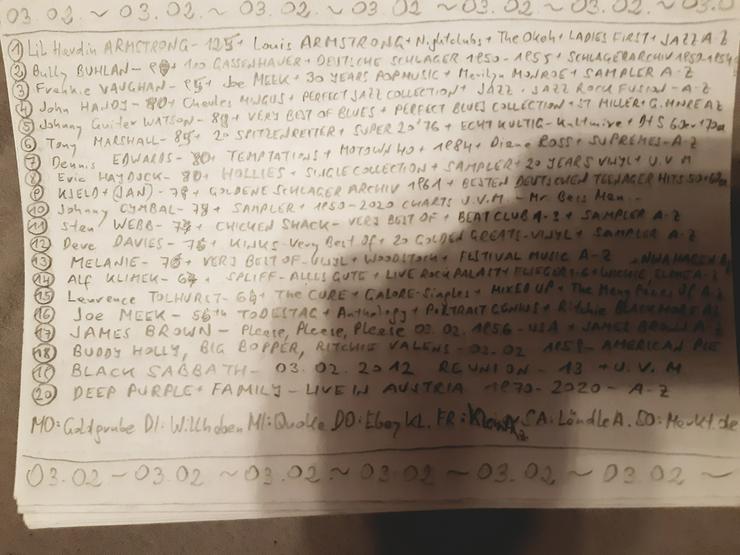 03.02 ~ 03.02 ~ 03.02 ~ 03.02 ~ 03.02 ~ 03.02 ~ 03.0
① LIL Hardin ARMSTRONG - 125 + Louis ARMSTRONG + Nightclubs + The Okeh + LADIES FIRST + JAZZ A-Z
② Bully BUHLAN - + 100 GASSENHAUER + DEUTSCHE SCHLAGER 1950-1955 + SCHLAGERARCHIV 1950-1954
③ Frankie VAUGHAN - 95 + Joe MEEK + 30 YEARS POPMUSIC + Marilyn MONROE + SAMPLER A-Z
④ John HANDY - 90 + Charles MINGUS + PERFECT JAZZ COLLECTION + JAZZ + JAZZ ROCK FUSION - A-Z
⑤ Johnny Guitar WATSON - + VERY BEST OF BLUES + PERFECT BLUES COLLECTION + ST MILLER + G. MORE AZ
⑥ Tony MARSHALL - 85 + 20 SPITZENREITER + SUPER 20 '76 + ECHT KULTIG - + D+S 60er+70er
⑦ Dennis EDWARDS - 80 + TEMPTATIONS + MOTOWN 40 + 1984 + Diana ROSS + SUPREMES - A-Z
⑧ Eric HAYDOCK - 80 + HOLLIES + SINGLE COLLECTION + SAMPLER + 20 YEARS VINYL + U.V.M
⑨ KJELD + (JAN) - 78 + GOLDENE SCHLAGER ARCHIV 1961 + BESTEN DEUTSCHEN TEENAGER HITS 50+60er
⑩ Johnny CYMBAL - 78 + SAMPLER + 1950-2020 CHARTS U.V.M - Mr. Bass Man...
⑪ Stan WEBB - + CHICKEN SHACK - VERY BEST OF + BEAT CLUB A-Z + SAMPLER A-Z
⑫ Dave DAVIES - + KINKS - Very Best Of + 20 GOLDEN GREATS - VINYL + SAMPLER A-Z
⑬ MELANIE - + VERY BEST OF - VINYL + WOODSTOCK + FESTIVAL MUSIC A-Z
⑭ Alf KLIMEK - + SPLIFF - ALLES GUTE + LIVE ROCKPALAST +
⑮ Laurence TOLHURST - + The CURE + GALORE - Singles + MIXED UP + The Many Faces Of A-Z
⑯ Joe MEEK - TODESTAG + Anthology + PORTRAIT GENIUS + Ritchie BLACKMORE AZ
⑰ JAMES BROWN - Please, Please, Please 03.02.1956 - USA + JAMES BROWN A-Z
⑱ BUDDY HOLLY, BIG BOPPER, RITCHIE VALENS - 03.02 1959 - AMERICAN PIE
⑲ BLACK SABBATH - 03.02.2012 REUNION - 13 + U.V.M
⑳ DEEP PURPLE + FAMILY - LIVE IN AUSTRIA 1970-2020 - A-Z
MO: Goldgrube DI: Willhaben MI: Quoka DO: Ebay KL. FR: SA: Ländle A. SO: Markt.de
03.02 ~ 03.02 ~ 03.02 ~ 03.02 ~ 03.02 ~ 03.02 ~ 03.02